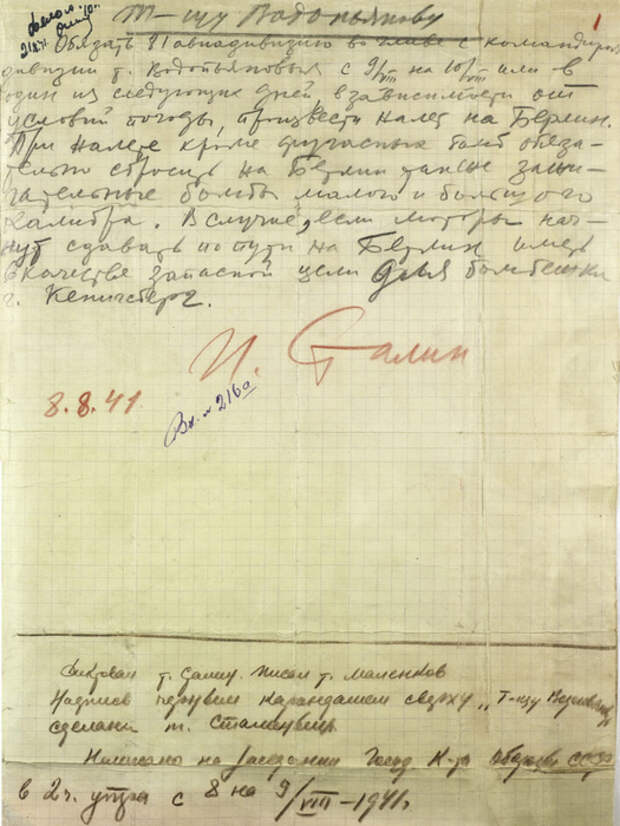 Т-щу Водопьянову
1
Обязать 81 авиадивизию во главе с командиром
дивизии т. Водопьяновым с 9/VIII на 10/VIII или в
один из следующих дней в зависимости от
условий погоды, произвести налет на Берлин.
При налете кроме фугасных бомб обяза-
тельно сбросить на Берлин также зажи-
гательные бомбы малого и большого
калибра. В случае, если моторы нач-
нут сдавать по пути на Берлин иметь
в качестве запасной цели для бомбежки
г. Кенигсберг.
И. Сталин
8.8.41
Вх. № 216
Диктовал т. Сталин. Писал т. Маленков
Надпись черным карандашем сверху „Т-щу
сделана т. Сталиным
Написано на заседании Госуд. К-та Обороны СССР
в 2 ч. утра с 8 на 9/VIII–1941г.